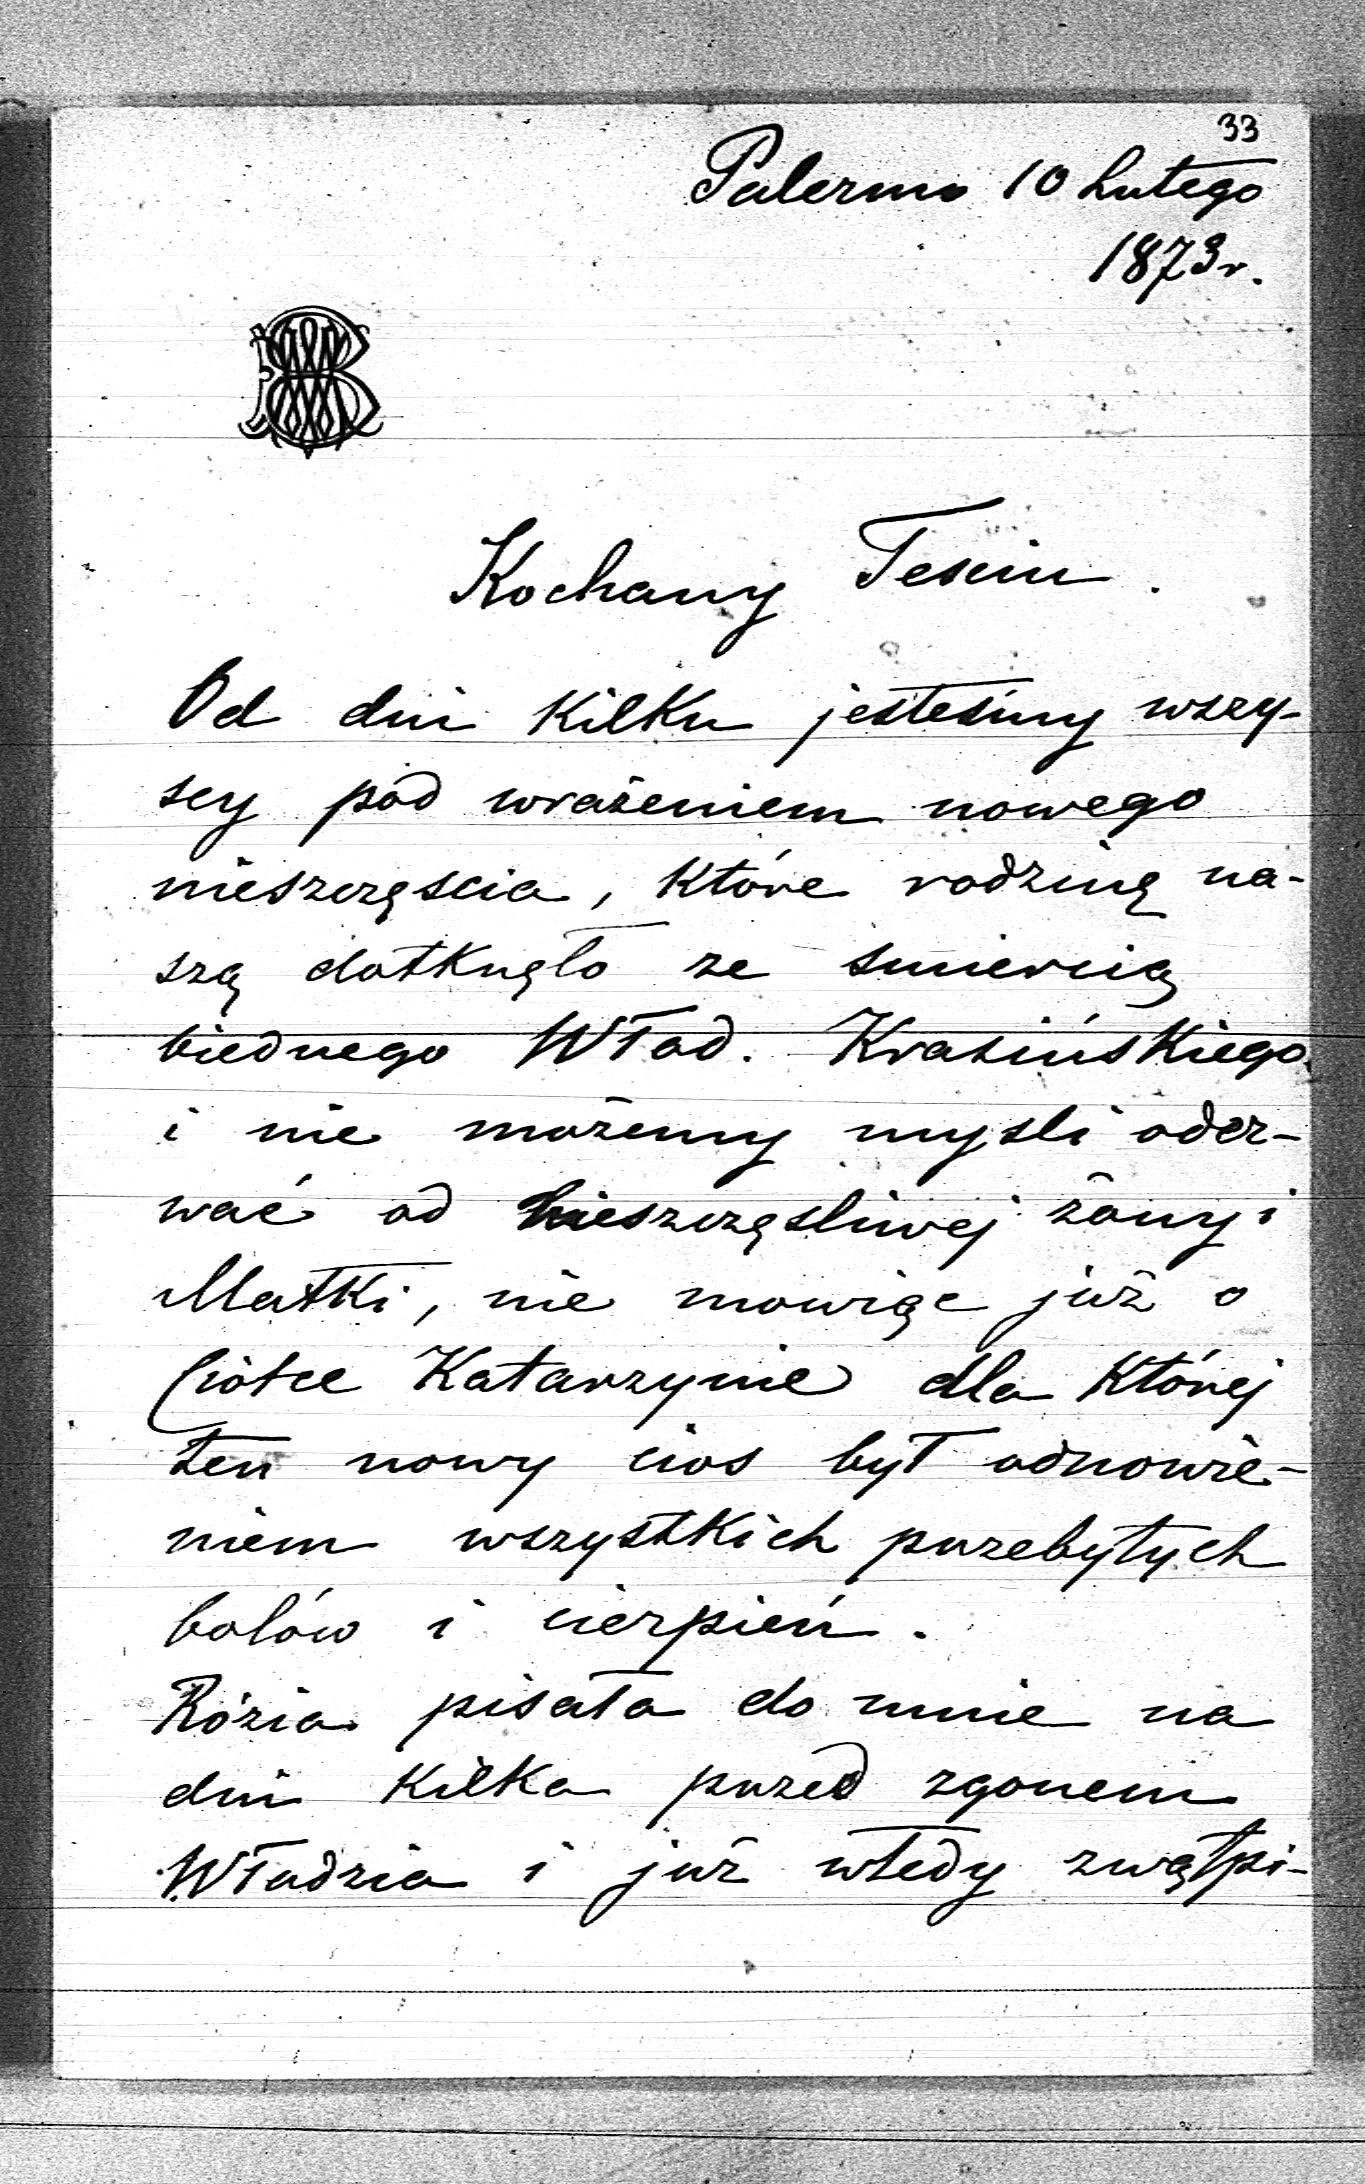 33
Palermo 10 Lutego
1873 r.
Kochany Tesciu.
Od dni kilku jesteśmy wszy-
scy pod wrażeniem nowego
nieszczęscia, które rodzinę na-
szą dotknęło ze smiercią
biednego Wład. Krasińskiego.
i nie możemy mysli oder-
wać od nieszczęsliwej żony i
Matki, nie mowiąc już o
Ciotce Katarzynie dla której
ten nowy cios był odnowie-
niem wszystkich przebytych
bolów i cierpień.
Rózia pisała do mnie na
dni kilka przed zgonem
Władzia i już wtedy zwątpi-